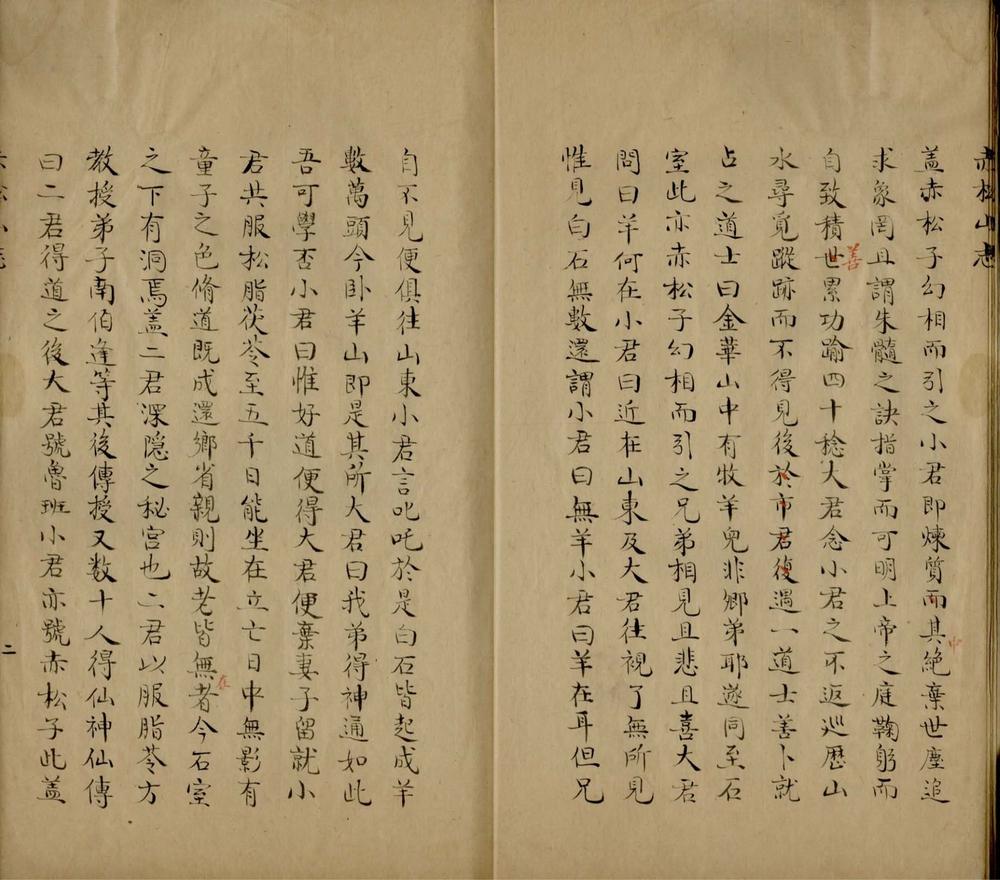 赤松山志
蓋赤松子幻相而引之小君即煉質而其絕棄世塵追
中
求象罔且謂朱髓之訣指掌而可明上帝之庭鞠躬而
自致積世累功踰四十稔大君念小君之不返巡歷山
善
水尋覓蹤跡而不得見後於市君復遇一道士善卜就
占之道士曰金華山中有牧羊兒非卿弟耶遂同至石
室此亦赤松子幻相而引之兄弟相見且悲且喜大君
問曰羊何在小君曰近在山東及大君往視了無所見
惟見白石無數還謂小君曰無羊小君曰羊在耳但兄
自不見便俱往山東小君言叱吒於是白石皆起成羊
數萬頭今卧羊山即是其所大君曰我弟得神通如此
吾可學否小君曰惟好道便得大君便棄妻子留就小
君共服松脂茯苓至五千日能坐在立亡日中無影有
童子之色脩道既成還鄉省親則故老皆無者今石室
在
之下有洞焉盖二君深隐之秘宮也二君以服脂苓方
教授弟子南伯逢等其後傳授又数十人得仙神仙傳
曰二君得道之後大君號魯班小君亦號赤松子此蓋
二